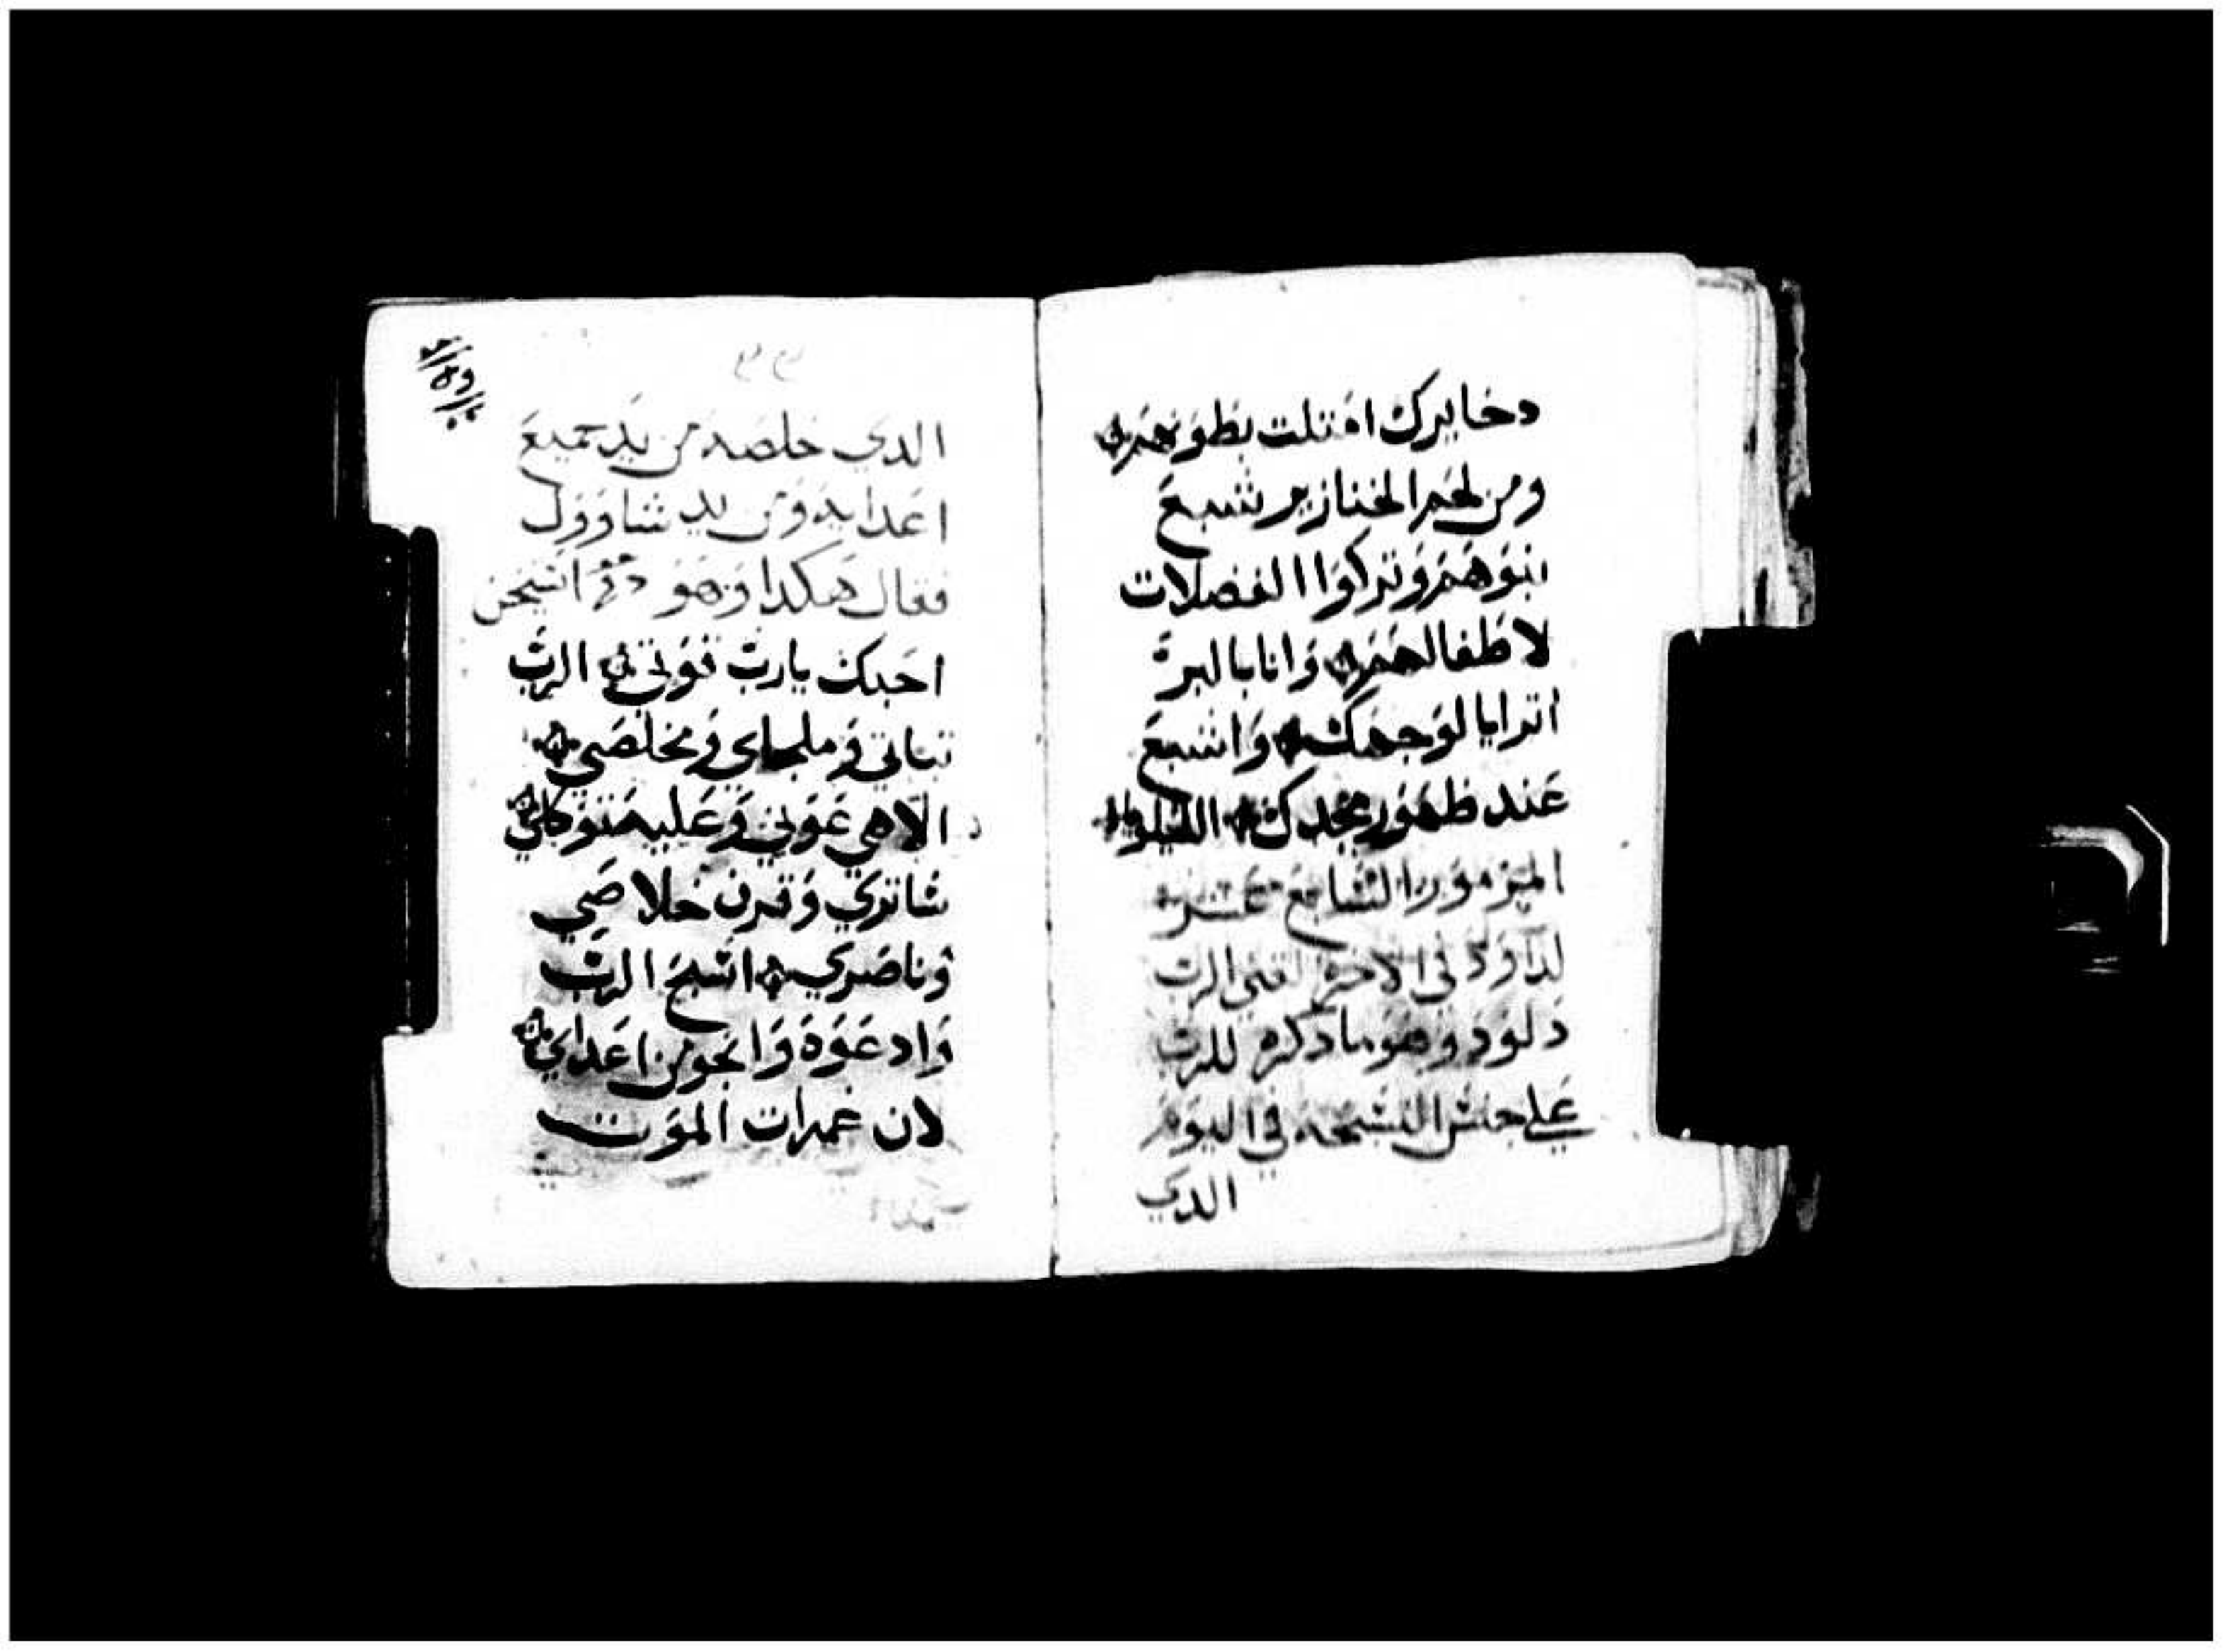 دخايرك امتلت بطونهم
ومن لحم الخنازير شبع
بنوهم وتركوا الفضلات
لاطفالهم وانا بالبر
اترايا لوجهك واشبع
عند ظهور مجدك الليلويا
المزمور السابع عشر
لداوود في الاخر لعني الرب
داوود وهو ما دكره للرب
علي جنس التسبحه في اليوم
الدي
الدي خلصه من يد جميع
اعدايه ومن يد شاوول
فقال هكدا وهو
احبك يارب قوتي الرب
تباتي وملجاي ومخلصي
الاهي عوني وعليه متوكلي
ساتري وقرن خلاصي
وناصري اسبح الرب
وادعوه وانجو من اعداي
لان غمرات الموت